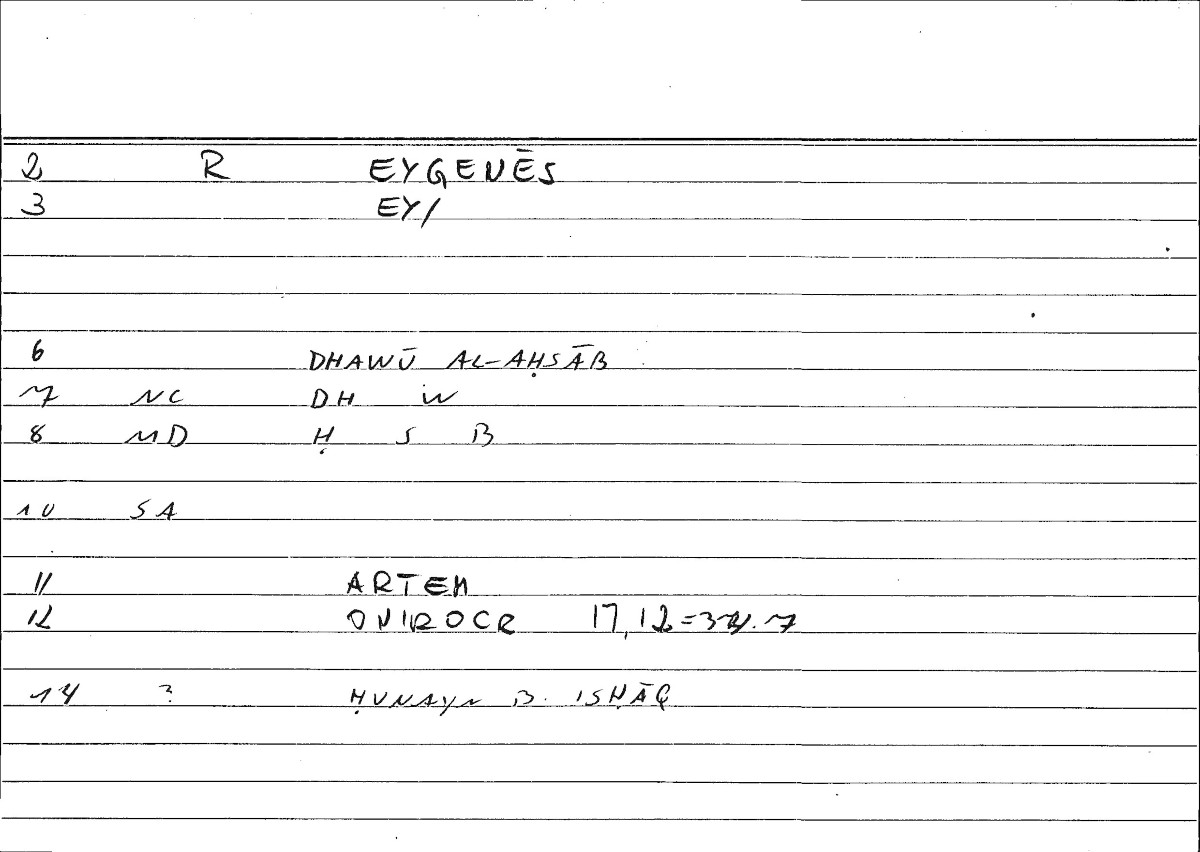 2 R EYGENĒS
3 EY/
6 DHAWŪ AL-AḤSĀB
7 NC DH W
8 MD Ḥ S B
10 SA
11 ARTEM
12 ONIROCR 17,12=
14 ? ḤUNAYN B. ISḤĀQ